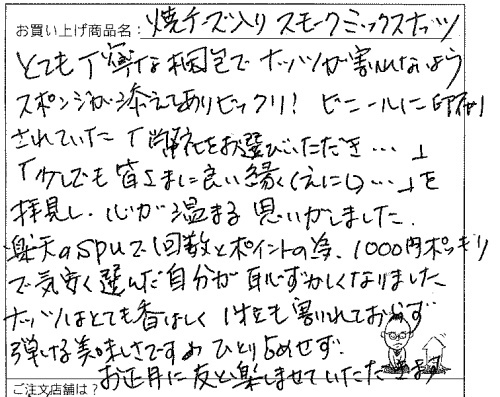 お買い上げ商品名: 焼チーズ入り スモークミックスナッツ
とても丁寧な梱包でナッツが割れないよう
スポンジが添えてありビックリ! ビニールに印刷
されていた「弊社をお選びいただき…」
「少しでも皆さまに良い縁(えにし)…」を
拝見し、心が温まる思いがしました。
楽天のSPUで1回数とポイントの為、1000円ポッキリ
で気安く選んだ自分が恥ずかしくなりました
ナッツはとても香ばしく 1粒も割れておらず
弾ける美味しさですね ひとり占めせず、
お正月に友と楽しませていただきます
ご注文店舗は?